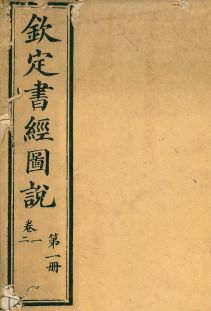 欽定書經圖說
第一冊
卷一二